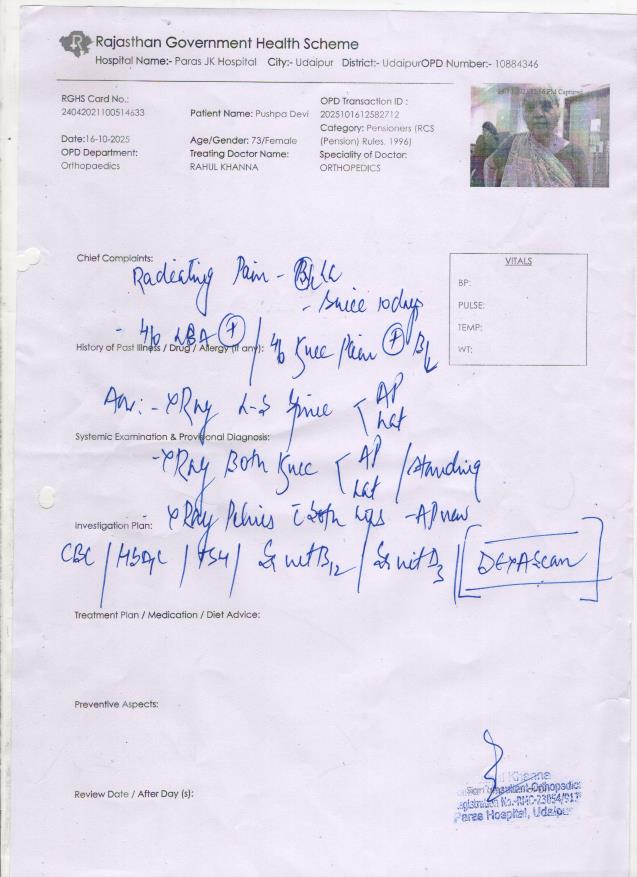 Rajasthan Government Health Scheme
Hospital Name:- Paras JK Hospital City:- Udaipur District:- UdaipurOPD Number:- 10884346
RGHS Card No.:
24042021100514633
Date:16-10-2025
OPD Department:
Orthopaedics
Patient Name: Pushpa Devi
Age/Gender: 73/Female
Treating Doctor Name:
RAHUL KHANNA
OPD Transaction ID :
2025101612582712
Category: Pensioners (RCS
(Pension) Rules, 1996)
Speciality of Doctor:
ORTHOPEDICS
Chief Complaints:
Radiating Pain - B/L LL
- Since 10 days
VITALS
BP:
PULSE:
TEMP:
WT:
- H/o LBA + / H/o Knee Pain + B/L
History of Past Illness / Drug / Allergy (if any):
Adv: - XRay L-S Spine AP
Lat
Systemic Examination & Provisional Diagnosis:
- XRay Both Knee AP / Standing
Lat
Investigation Plan:
XRay Pelvis c both hips - AP view
CBC / HbA1c / TSH / Sr vit B12 / Sr vit D3 / DEXA Scan
Treatment Plan / Medication / Diet Advice:
Preventive Aspects:
Review Date / After Day (s):
Khanna
Consultant Orthopedic
Registration No.-RMC-
Paras Hospital, Udaipur